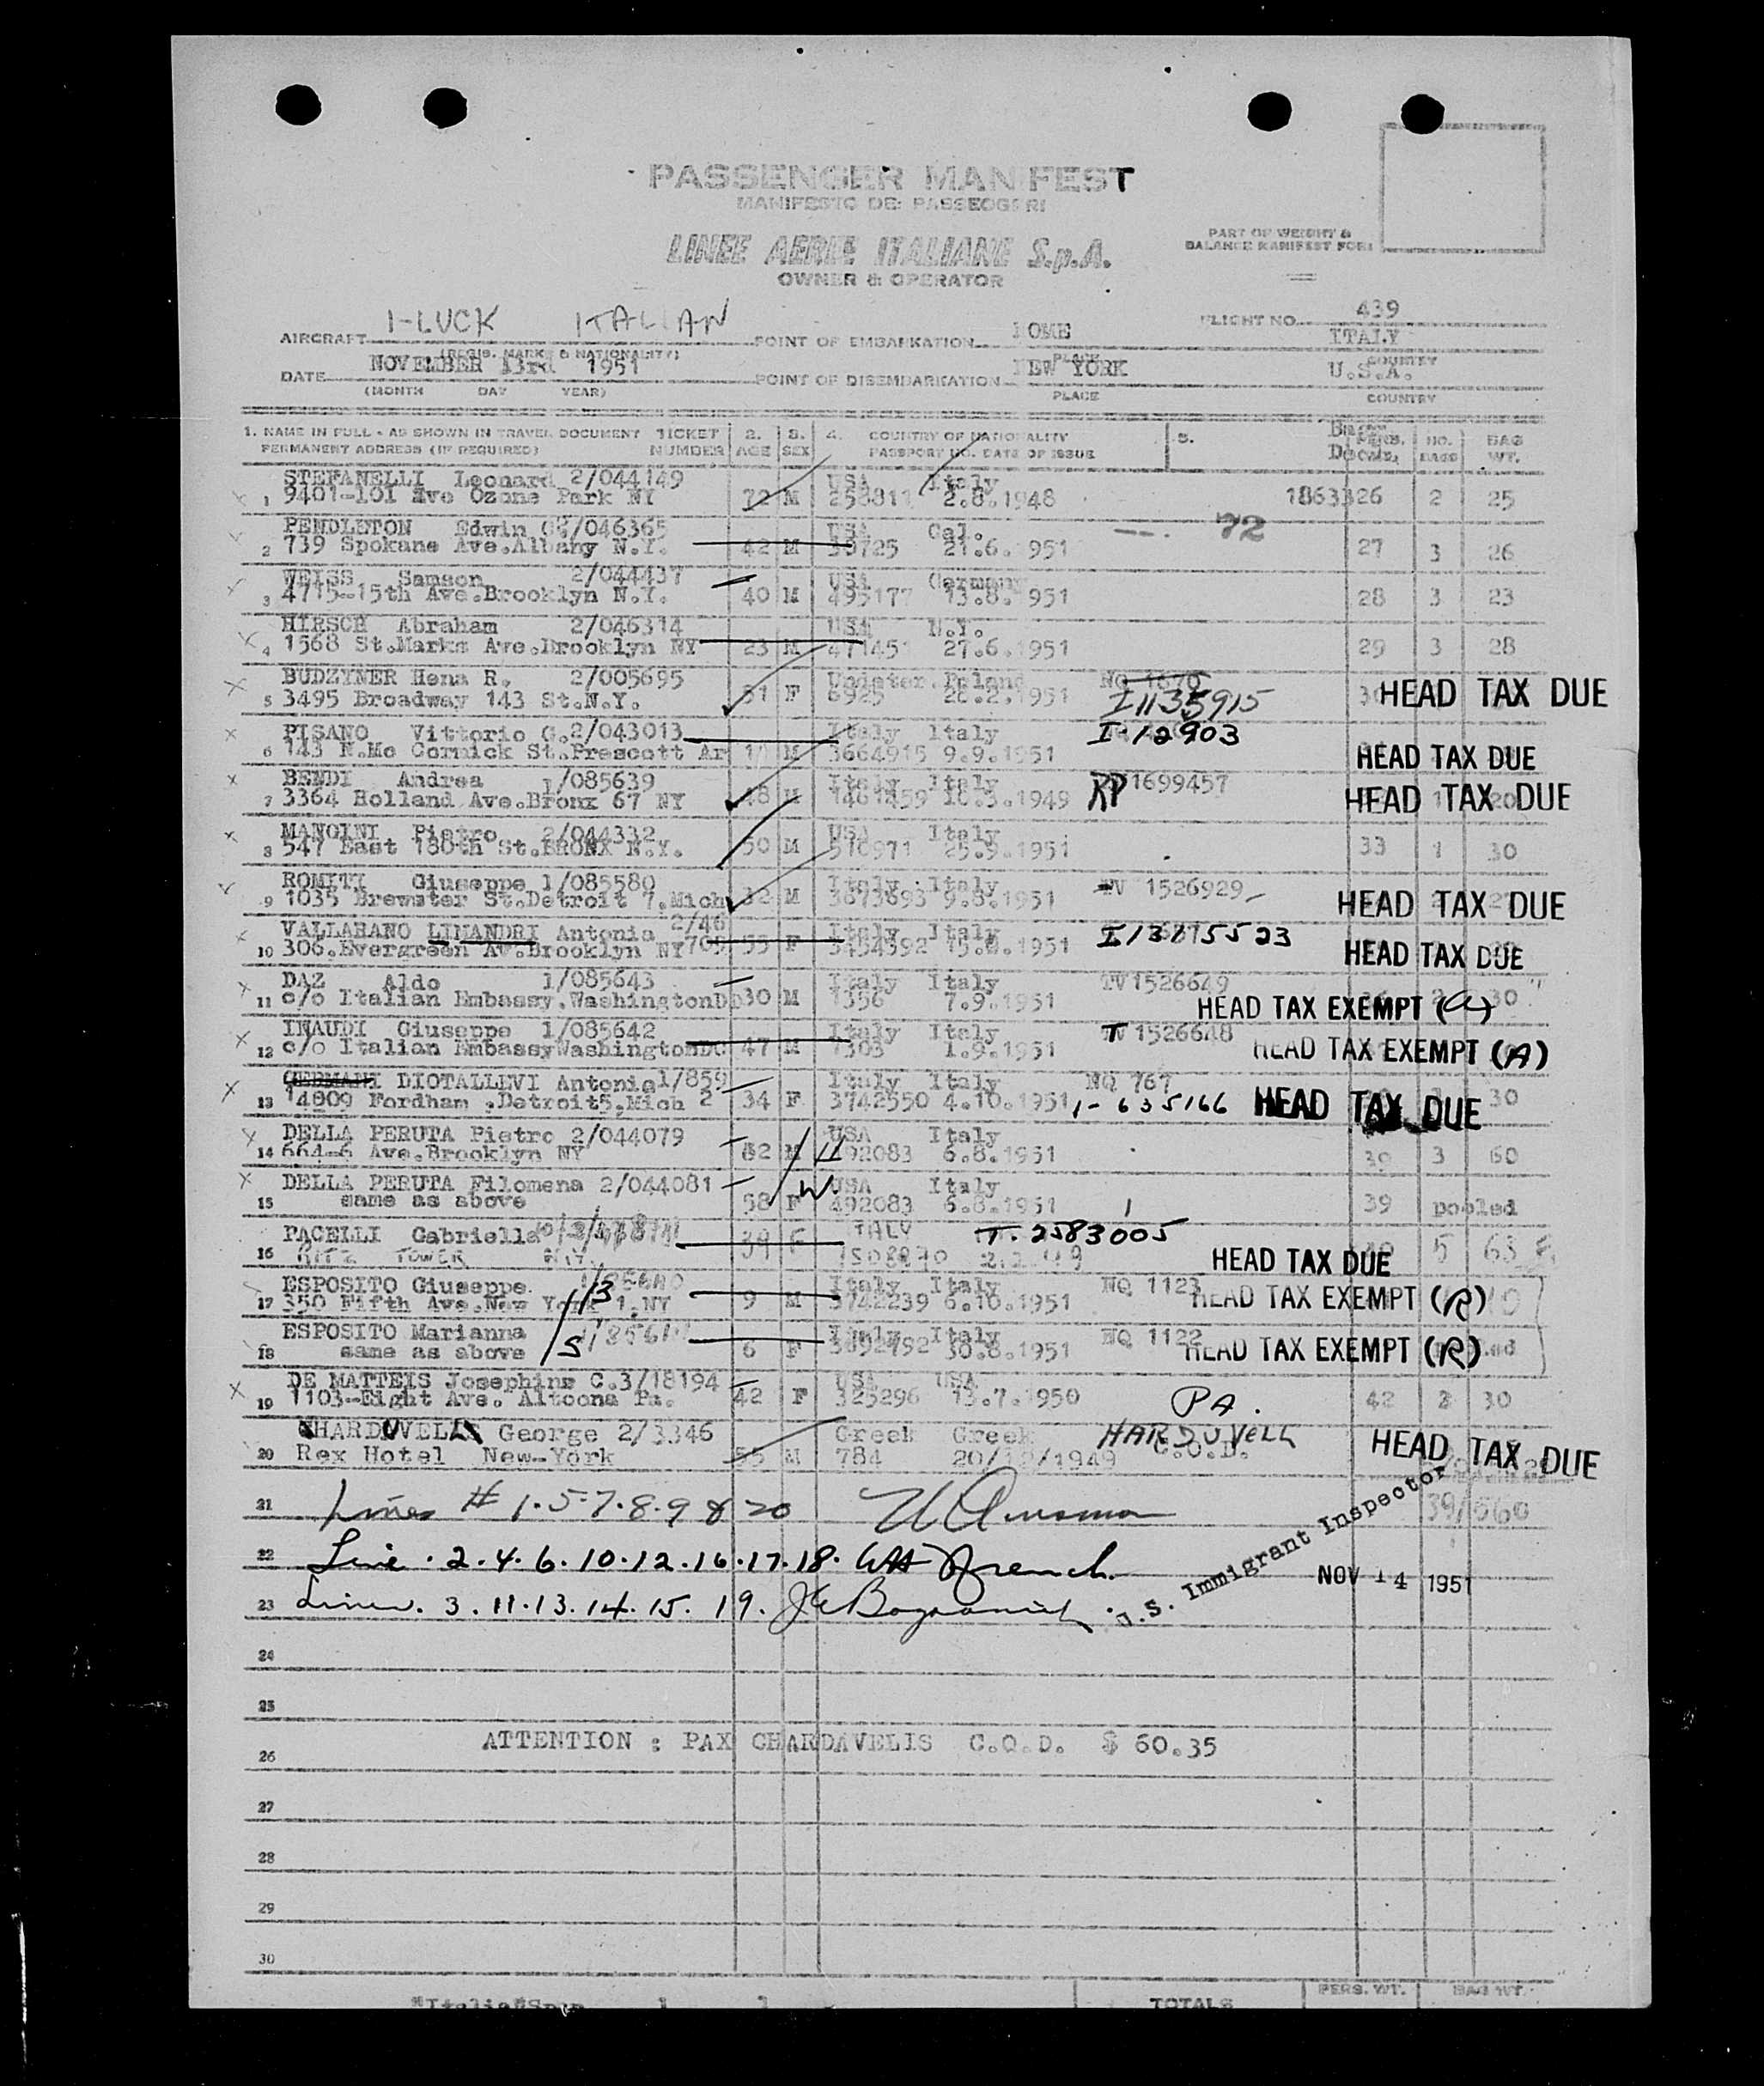 PASSENGER MANIFEST
MANIFESTO DEI PASSEGGERI
LINEE AEREE ITALIANE S.p.A.
OWNER & OPERATOR
PART OF WEIGHT &
BALANCE MANIFEST FOR:
AIRCRAFT I-LUCK ITALIAN POINT OF EMBARKATION ROME FLIGHT NO. 439
ITALY
(REGIS. MARKS & NATIONALITY) PLACE COUNTRY
DATE NOVEMBER 13rd 1951 POINT OF DISEMBARKATION NEW YORK U.S.A.
(MONTH DAY YEAR) PLACE COUNTRY
1. NAME IN FULL - AS SHOWN IN TRAVEL DOCUMENT TICKET 2. 3. 4. COUNTRY OF NATIONALITY 5. PERS. NO. BAG
PERMANENT ADDRESS (IF REQUIRED) NUMBER AGE SEX PASSPORT NO. DATE OF ISSUE WT.
STEFANELLI Leonard 2/044149 USA Italy
1 9401-101 Ave Ozone Park NY 72 M 258811 2.8.1948 1863326 2 25
PENDLETON Edwin 2/046365 USA Cal. 72
2 739 Spokane Ave.Albany N.Y. 42 M 21.6. 951 27 3 26
WEISS Samson 2/044437 USA Germany
3 4715-15th Ave.Brooklyn N.Y. 40 M 495177 13.8. 951 28 3 23
HIRSCH Abraham 2/046314 USA N.Y.
4 1568 St.Marks Ave.Brooklyn NY 23 M 47145 27.6.1951 29 3 28
BUDZYNER Hena R. 2/005695 Poland NQ 1670
5 3495 Broadway 143 St.N.Y. 51 F 6925 1951 I1135915 HEAD TAX DUE
PISANO Vittorio G.2/043013 Italy Italy I-12903
6 143 N.Mc Cormick St.Prescott Ar M 3664915 9.9.1951 HEAD TAX DUE
BENDI Andrea 1/085639 Italy Italy RP 1699457
7 3364 Holland Ave.Bronx 67 NY 48 M 1949 HEAD TAX DUE
MANCINI Pietro 2/044332 USA Italy
8 547 East 180th St.BRONX N.Y. 50 M 25.9.1951 33 1 30
ROMITI Giuseppe 1/085580 Italy Italy 1526929
9 1035 Brewster St.Detroit 7.Mich 32 M 9.8.1951 HEAD TAX DUE
2/46
VALLARANO LIMANDRI Antonia Italy Italy
10 306.Evergreen Av.Brooklyn NY 55 F 1951 HEAD TAX DUE
DAZ Aldo 1/085643 Italy Italy TV 1526649
11 c/o Italian Embassy.Washington 30 M 1356 7.9.1951 30 HEAD TAX EXEMPT (A)
INAUDI Giuseppe 1/085642 Italy Italy 1526648
12 c/o Italian EmbassyWashingtonDC 47 M 1.9.1951 HEAD TAX EXEMPT (A)
DIOTALLEVI Antonia 1/859 Italy Italy NQ 767
13 14009 Fordham .Detroit5.Mich 2 34 F 3742550 4.10.1951 I-635166 HEAD TAX DUE 30
DELLA PERUTA Pietro 2/044079 USA Italy H
14 664-6 Ave.Brooklyn NY 62 M 492083 6.8.1951 39 3 60
DELLA PERUTA Filomena 2/044081 W USA Italy
15 same as above 58 F 492083 6.8.1951 39 pooled
PACELLI Gabriella ITALY T. 2583005
16 RITZ TOWER N.Y. F HEAD TAX DUE 5 63
ESPOSITO Giuseppe Italy Italy NQ 1123
17 350 Fifth Ave.New York 1.NY 9 M 3742239 6.10.1951 HEAD TAX EXEMPT (R)
ESPOSITO Marianna Italy Italy NQ 1122
18 same as above 6 F 30.8.1951 HEAD TAX EXEMPT (R)
DE MATTEIS Josephine C.3/18194 USA USA
19 1103-Eight Ave. Altoona Pa. 42 F 325296 13.7.1950 PA. 42 2 30
George 2/3346 Greek Greek HARDUVELL
20 Rex Hotel New-York 55 M 784 20/12/1949 C.O.D. HEAD TAX DUE
21 Lines # 1.5.7.8.9 & 20 39/560
22 Line . 2.4.6.10.12.16.17.18. French
U.S. Immigrant Inspector
NOV 14 1951
23 Lines. 3.11.13.14.15.19.
24
25
26 ATTENTION : PAX CHARDAVELIS C.O.D. $ 60.35
27
28
29
30
TOTALS PERS. WT. BAG WT.